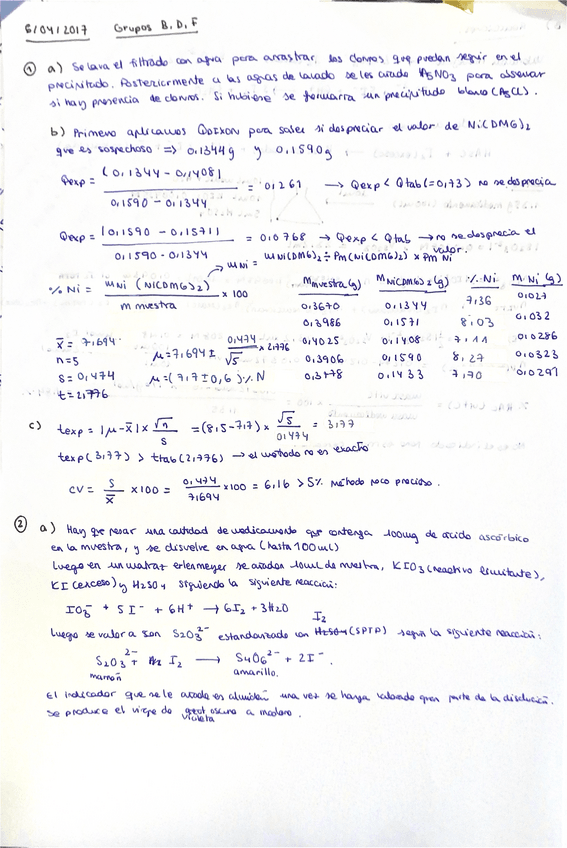 6/04/2017 Grupos B, D, F
① a) Se lava el filtrado con agua para arrastrar los cloruros que puedan seguir en el
precipitado. Posteriormente a las aguas de lavado se les añade AgNO3 para observar
si hay presencia de cloruros. Si hubiese se formaría un precipitado blanco (AgCl).
b) Primero aplicamos QDIXON para saber si despreciar el valor de Ni(DMG)2
que es sospechoso => 0,1344g y 0,1590g
Qexp = (0,1344 - 0,1408) / 0,1590 - 0,1344 = 0,261 → Qexp < Qtab (=0,73) no se desprecia
Qexp = |0,1590 - 0,1571| / 0,1590 - 0,1344 = 0,0768 → Qexp < Qtab → no se desprecia el
valor.
mNi = mNi(DMG)2 ÷ Pm(Ni(DMG)2) × Pm Ni
% Ni = mNi (Ni(DMG)2) / m muestra × 100
Mmuestra(g) MNi(DMG)2(g) % Ni M Ni (g)
0,3670 0,1344 7,36 0,027
0,3986 0,1571 8,03 0,032
0,4025 0,1408 7,11 0,0286
0,3906 0,1590 8,27 0,0323
0,3778 0,1433 7,70 0,0291
x̄ = 7,694
n=5
s=0,474
t=2,776
μ=7,694 ± 0,474/√5 × 2,776
μ=(7,7±0,6)% N
c) texp = |μ-x̄| × √n/s = (8,5-7,7) × √5/0,474 = 3,77
texp (3,77) > ttab (2,776) → el método no es exacto
CV = s/x̄ × 100 = 0,474/7,694 × 100 = 6,16 > 5% método poco preciso.
② a) Hay que pesar una cantidad de medicamento que contenga 100mg de ácido ascórbico
en la muestra, y se disuelve en agua (hasta 100ml)
Luego en un matraz erlenmeyer se añaden 10ml de muestra, KIO3 (reactivo limitante),
KI (exceso) y H2SO4 siguiendo la siguiente reacción:
IO3- + 5I- + 6H+ → 6I2 + 3H2O
I2
Luego se valora con S2O3 2- estandarizado con H2SO4 (SPTP) según la siguiente reacción:
S2O3 2- + I2 → S4O6 2- + 2I-.
marrón amarillo.
El indicador que se le añade es almidón una vez se haya valorado gran parte de la disolución.
Se produce el viraje de oscuro a incoloro.
violeta